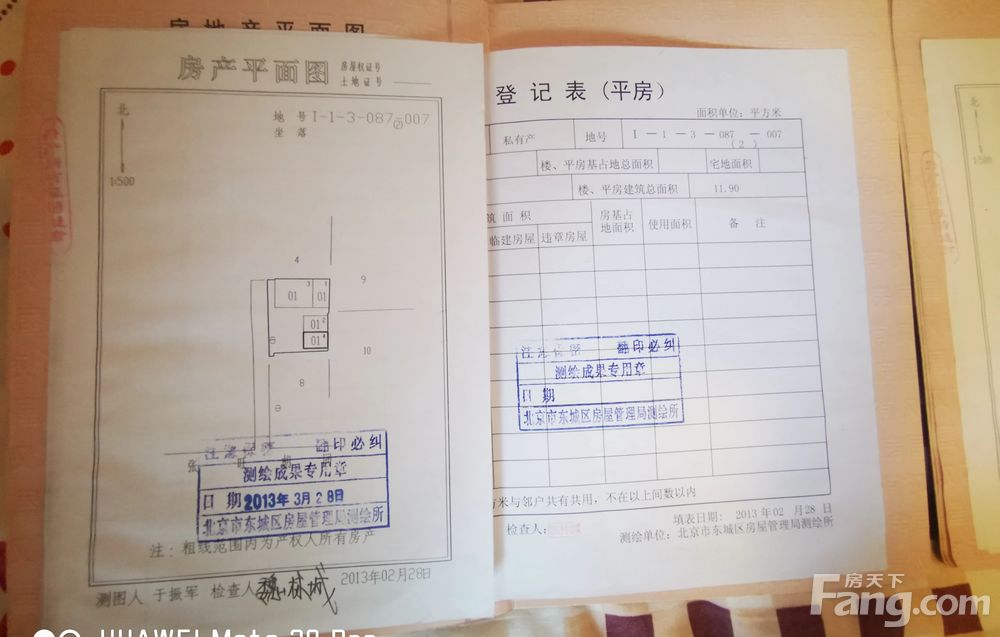 房地产平面图
房产平面图
房屋权证号
土地证号
北
1:500
地 号 I-1-3-087-007
(2)
坐 落
4
9
3
1
01
01
2
01
4
01
10
8
注意保密 翻印必纠
测绘成果专用章
日 期 2013年 3月 28日
北京市东城区房屋管理局测绘所
注：粗线范围内为产权人所有房产
测图人 于振军 检查人 魏林城 2013年02月28日
登记表（平房）
面积单位：平方米
私有产
地号
I — 1 — 3 — 087 — 007
(2)
楼、平房基占地总面积
宅地面积
楼、平房建筑总面积
11.90
筑 面 积
房基占地面积
使用面积
备 注
临建房屋
违章房屋
注意保密 翻印必纠
测绘成果专用章
日 期
北京市东城区房屋管理局测绘所
方米与邻户共有共用，不在以上间数以内
检查人：
填表日期： 2013年02 月28 日
测绘单位：北京市东城区房屋管理局测绘所
北
1:500
房天下
Fang.com
HUAWEI Mate 20 Pro